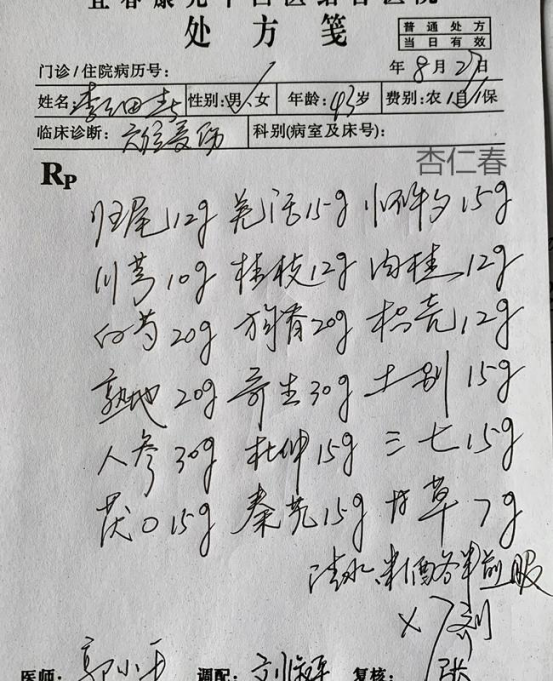 处方笺
普通处方
当日有效
门诊/住院病历号： 年8月27日
姓名：李 性别：男/女 年龄：43岁 费别：农/自/保
临床诊断： 科别(病室及床号)：
杏仁春
RP
归尾12g 羌活15g 怀牛夕15g
川芎10g 桂枝12g 肉桂12g
白芍20g 狗脊20g 枳壳12g
熟地20g 寄生30g 土别15g
人参30g 杜仲15g 三七15g
茯〇15g 秦艽15g 甘草7g
清水、米酒各半煎服
×7剂
医师：郭小平 调配：刘 复核：张